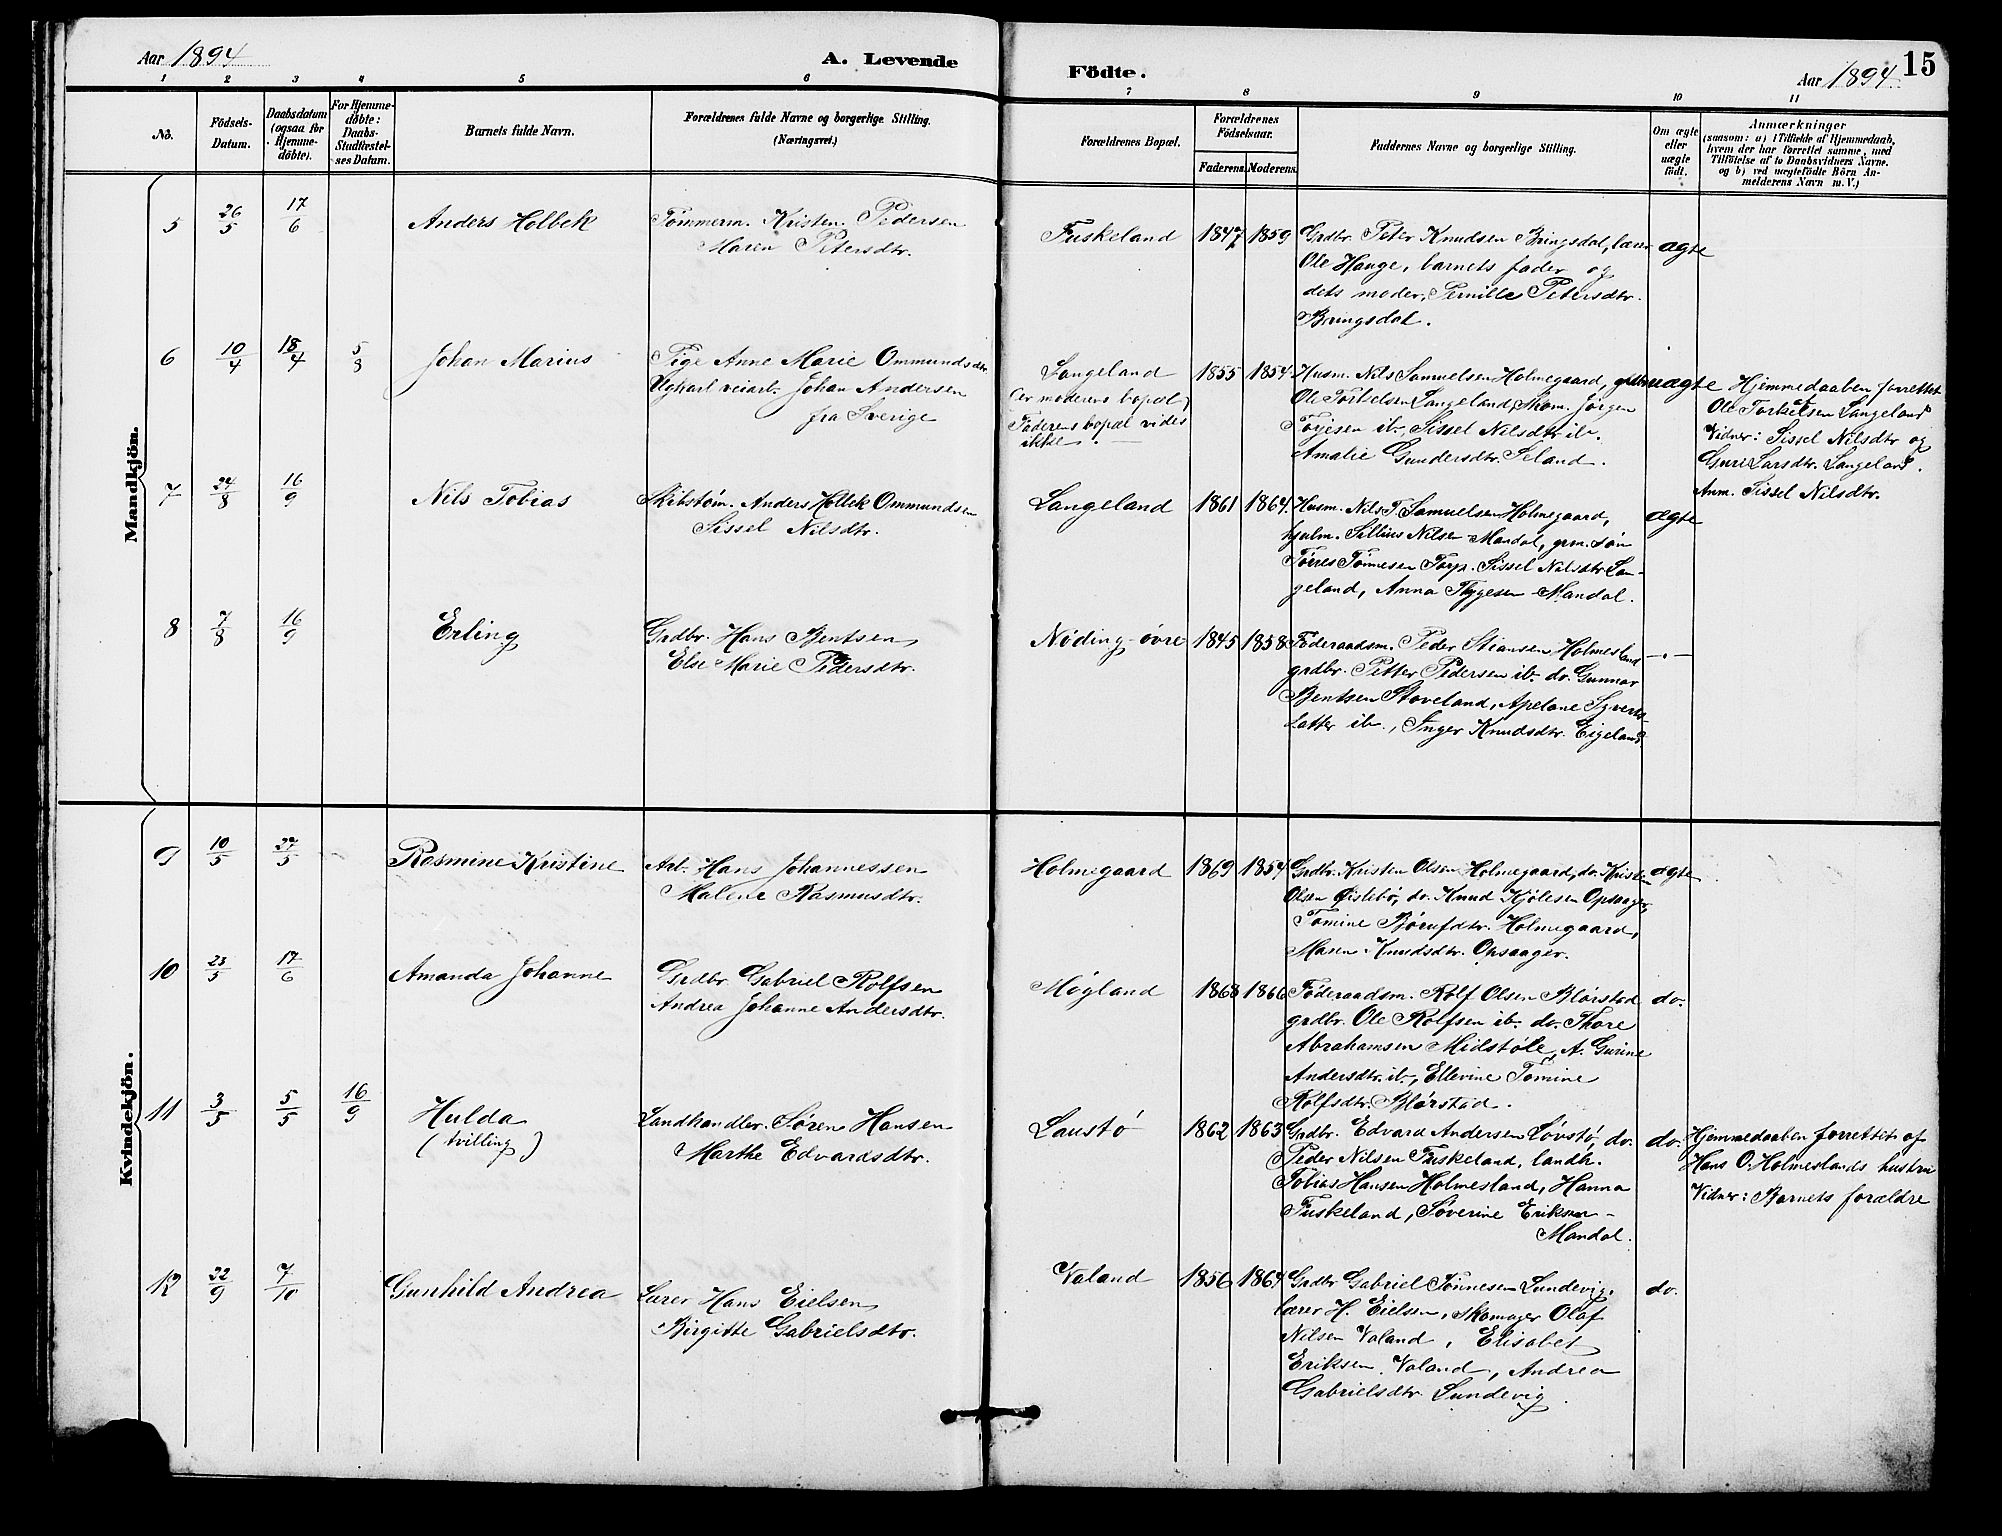 Aar 1894
A. Levende
Födte.
Aar 1894
15
1 2 3 4 5 6 7 8 9 10 11
No.
Födsels-
Datum.
Daabsdatum
(ogsaa for
Hjemme-
döbte).
For Hjemme-
döbte:
Daabs-
Stadfæstel-
ses Datum.
Barnets fulde Navn.
Forældrenes fulde Navne og borgerlige Stilling.
(Næringsvei.)
Forældrenes Bopæl.
Forældrenes
Födselsaar.
Faderens. Moderens.
Faddernes Navne og borgerlige Stilling.
Om ægte
eller
uægte
födt.
Anmærkninger
(saasom: a) i Tilfælde af Hjemmedaab,
hvem der har forrettet samme, med
Tilföielse af to Daabsvidners Navne.
og b) ved uægtefödte Börn An-
melderens Navn m. V.)
Mandkjön.
5 26/5 17/6 Anders Holbek
Tømmerm. Kristen Pedersen
Maren Petersdtr.
Fuskeland 1847 1859
Grdbr. Peter Knudsen Bringsdal, lærer
Ole Hauge, barnets fader og
dets moder, Pernille Petersdtr.
Bringsdal.
ægte
6 10/4 18/4 5/8 Johan Marius
Pige Anne Marie Ommundsdtr.
Ugkarl veiarb. Johan Andersen
fra Sverige
Langeland
(er moderens bopæl,
Faderens bopæl vides
ikke
1855 1854
Husm. Nils Samuelsen Holmegaard,
Ole Torkelsen Langeland, Skom. Jörgen
Torjesen ib., Sissel Nilsdtr ib.
Amalie Gundersdtr. Seland.
uægte
Hjemmedaaben forrettet
Ole Torkelsen Langeland
Vidner: Sissel Nilsdtr og
Guri Larsdtr. Langeland.
Anm. Sissel Nilsdtr.
7 24/8 16/9 Nils Tobias
Skibstöm. Anders Holbek Ommundsen
Sissel Nilsdtr.
Langeland 1861 1864
Husm. Nils T. Samuelsen Holmegaard,
hjulm. Sillius Nilsen Mandal, grm. søn
Tørres Tönnesen Torp. Sissel Nilsdtr Lan-
geland, Anna Thygesen Mandal.
ægte
8 7/8 16/9 Erling
Grdbr. Hans Bentsen
Else Marie Pedersdtr.
Nøding-øvre 1845 1858
Föderaadsm. Peder Stiansen Holmesland
grdbr. Petter Pedersen ib. do. Gunnar
Bentsen Stoveland, Apelone Syverts-
datter ib., Inger Knudsdtr. Eigeland.
-"-
Kvindekjön.
9 10/5 27/5 Rasmine Kristine
Arb. Hans Johannessen
Malene Rasmusdtr.
Holmegaard 1869 1854
Grdbr. Kristen Olsen Holmegaard, do. Kristen
Olsen Øislebø, do. Knud Kjölesen Opsaager,
Tomine Börufdtr. Holmegaard,
Maren Knudsdtr. Opsaager.
ægte
10 23/5 17/6 Amanda Johanne
Grdbr. Gabriel Rolfsen
Andrea Johanne Andersdtr.
Møgland 1868 1866
Föderaadsm. Rolf Olsen Blørstad
grdbr. Ole Rolfsen ib. do. Thore
Abrahamsen Midstöle, A. Gurine
Andersdtr. ib., Ellevine Tomine
Rolfsdtr. Blørstad.
do.
11 3/5 5/5 16/9 Hulda
(tvilling)
Landhandler. Søren Hansen
Marthe Edvardsdtr.
Laustø 1862 1863
Grdbr. Edvard Andersen Løvstø, do.
Peder Nilsen Fuskeland, landh.
Tobias Hansen Holmesland, Hanna
Fuskeland, Søverine Eriksen
Mandal.
do.
Hjemmedaaben forrettet af
Hans O. Holmeslands hustru
Vidner: Barnets forældre
12 22/9 7/10 Gunhild Andrea
Lærer Hans Eielsen
Birgitte Gabrielsdtr.
Valand 1856 1864
Grdbr Gabriel Tönnesen Lundevig,
lærer H. Eielsen, skomager Olaf
Nilsen Valand, Elisabet
Eriksen Valand, Andrea
Gabrielsdtr. Lundevig
do.